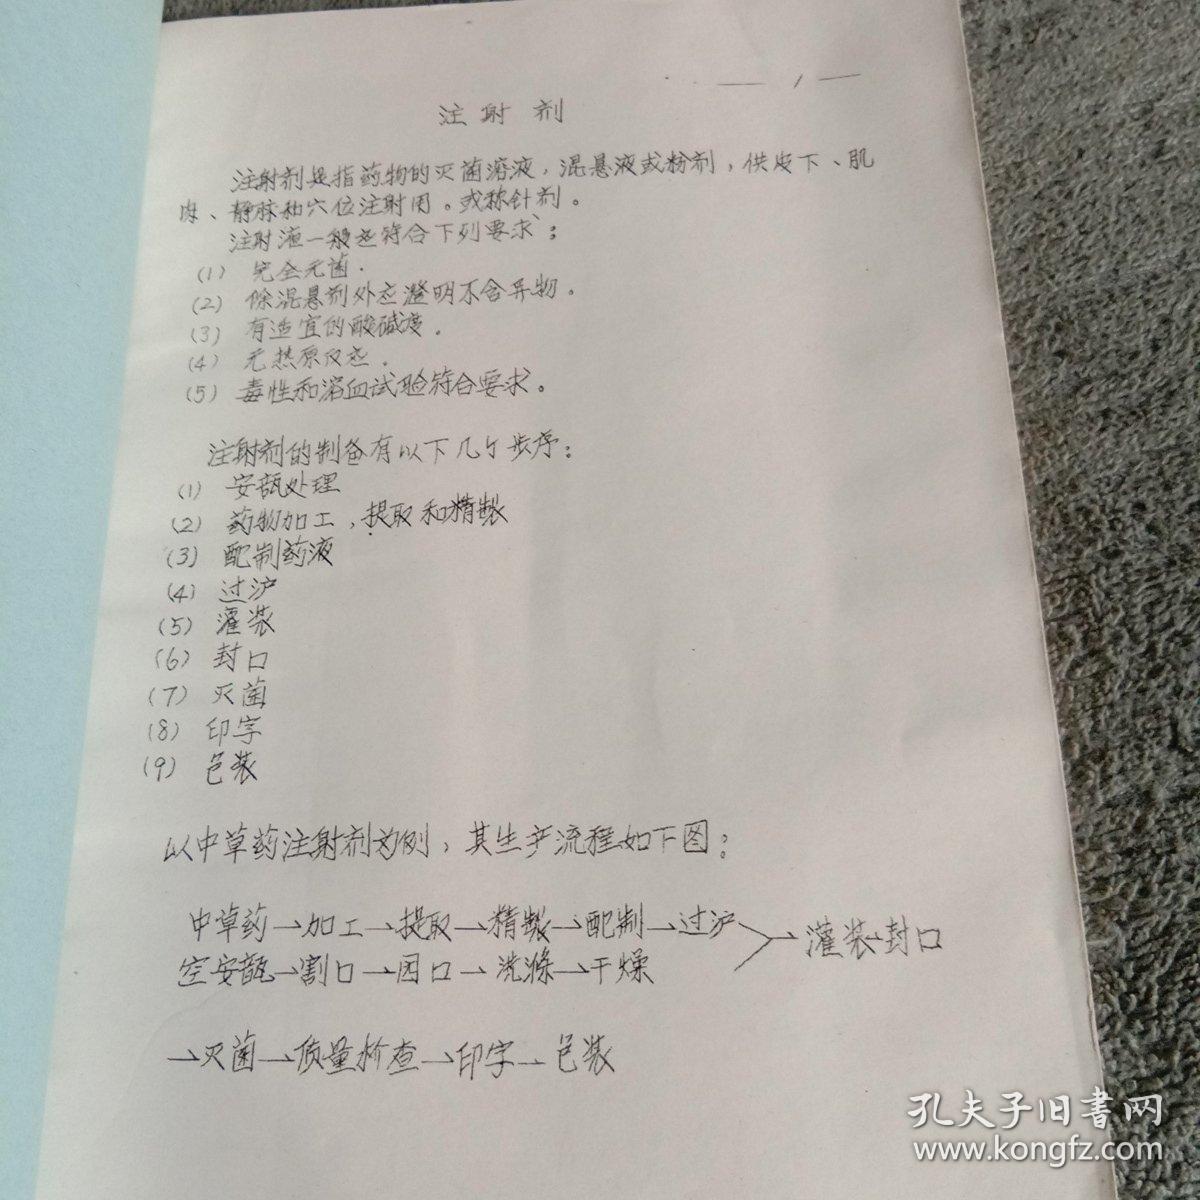 — 1 —
注射剂
注射剂是指药物的灭菌溶液，混悬液或粉剂，供皮下、肌
肉、静脉和穴位注射用。或称针剂。
注射液一般应符合下列要求：
(1) 完全无菌.
(2) 除混悬剂外应澄明不含异物。
(3) 有适宜的酸碱度.
(4) 无热原反应.
(5) 毒性和溶血试验符合要求。
注射剂的制备有以下几个步序：
(1) 安瓿处理
(2) 药物加工，提取和精製
(3) 配制药液
(4) 过沪
(5) 灌装
(6) 封口
(7) 灭菌
(8) 印字
(9) 包装
以中草药注射剂为例，其生产流程如下图：
中草药→加工→提取→精製→配制→过沪
空安瓿→割口→园口→洗涤→干燥
→灌装→封口
→灭菌→质量检查→印字→包装
孔夫子旧书网
www.kongfz.com